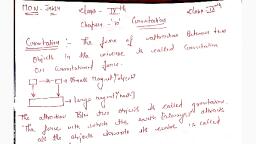 MON
class - IX th
class - IX th
Chapter - '10' Gravitation
Gravitation :- The force of attraction between two
objects in the universe is called Gravitation
or Gravitational force.
→ small magnet/object
→ large magnet/
The attraction btw two objects is called gravitation.
The force with which the earth attracts
all the objects towards its centre is called